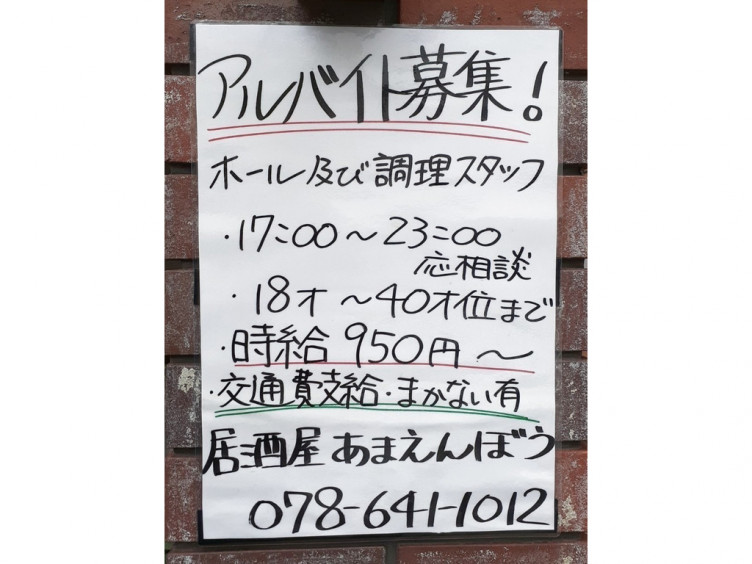 アルバイト募集!
ホール及び調理スタッフ
・17:00～23:00
応相談
・18才～40才位まで
・時給950円～
・交通費支給・まかない有
居酒屋あまえんぼう
078-641-1012